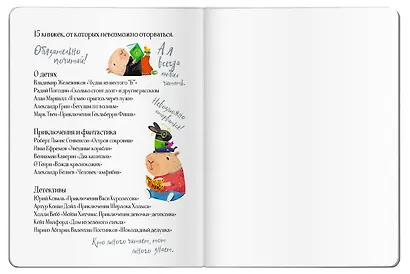 15 книжек, от которых невозможно оторваться.
Обязательно почитай!
А я всегда любил читать.
О детях
Владимир Железников "Чудак из шестого "Б"
Радий Погодин «Сколько стоит долг» и другие рассказы
Алан Маршалл «Я умею прыгать через лужи»
Александр Грин «Бегущая по волнам»
Марк Твен «Приключения Гекльберри Финна»
Невозможно оторваться!
Приключения и фантастика
Роберт Льюис Стивенсон «Остров сокровищ»
Иван Ефремов «Звёздные корабли»
Вениамин Каверин «Два капитана»
О'Генри «Вождь краснокожих»
Александр Беляев «Человек-амфибия»
Детективы
Юрий Коваль «Приключения Васи Куролесова»
Артур Конан Дойл «Приключения Шерлока Холмса»
Холли Вебб «Мейзи Хитчинс. Приключения девочки-детектива»
Кейт Милфорд «Дом из зеленого стекла»
Нарине Абгарян, Валентин Постников «Шоколадный дедушка»
Кто много читает, тот много знает.